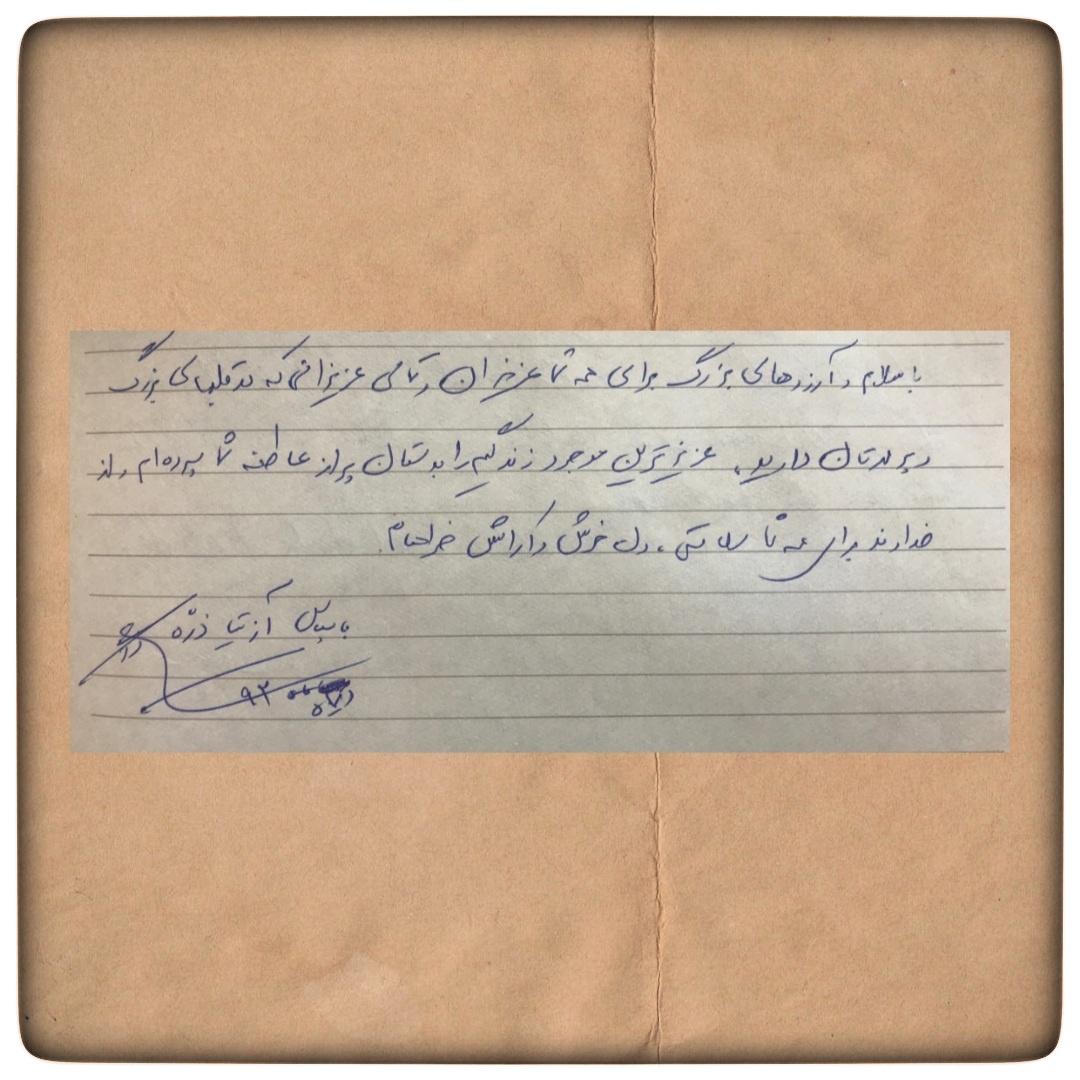 با سلام و آرزوهای بزرگ برای همه شما عزیزان و تمامی عزیزانی که در قلبهای بزرگ
و پر مهرتان دارید، عزیزترین موجود زندگیم را به دستان پر از عاطفه شما سپرده‌ام و از
خداوند برای همه شما سلامتی، دل خوش و آرامش خواهانم.
با سپاس
۹۳